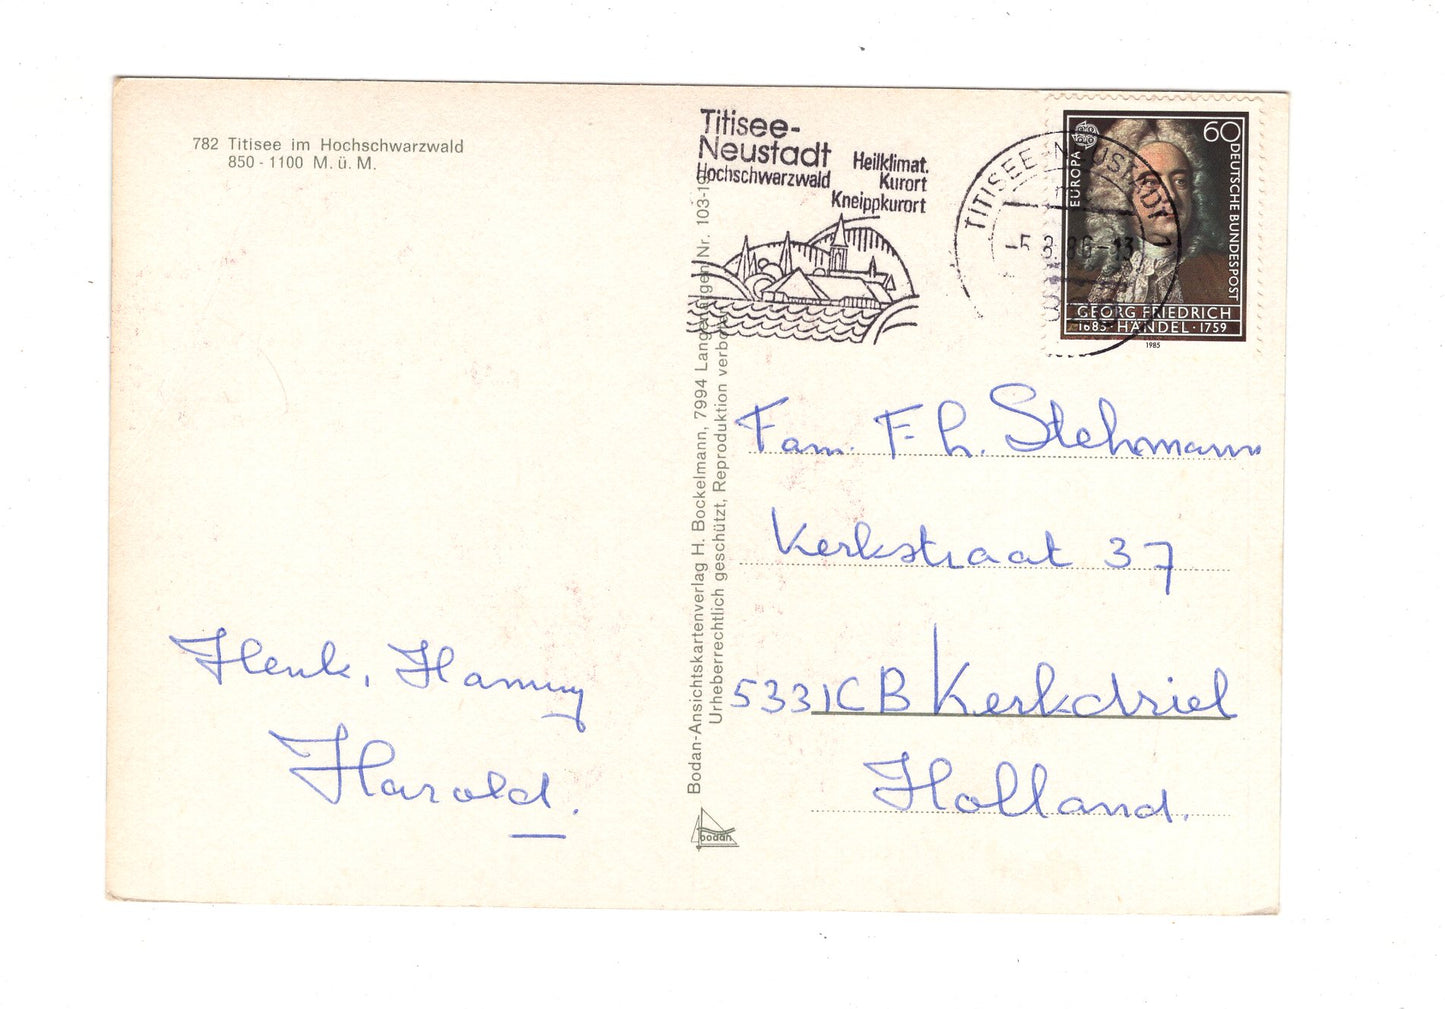 782 Titisee im Hochschwarzwald
850 - 1100 M. ü. M.
Titisee-
Neustadt
Hochschwarzwald
Heilklimat.
Kurort
Kneippkurort
TITISEE-NEUSTADT 1
-5.8.86-13
EUROPA
60
DEUTSCHE BUNDESPOST
GEORG FRIEDRICH
1685 · HÄNDEL · 1759
1985
Bodan-Ansichtskartenverlag H. Bockelmann, 7994 Langenargen Nr. 103-19
Urheberrechtlich geschützt, Reproduktion verboten
bodan
Fam. F. h. Stehmann
Kerkstraat 37
5331CB Kerkdriel
Holland.
Henk, Hanny
Harold.